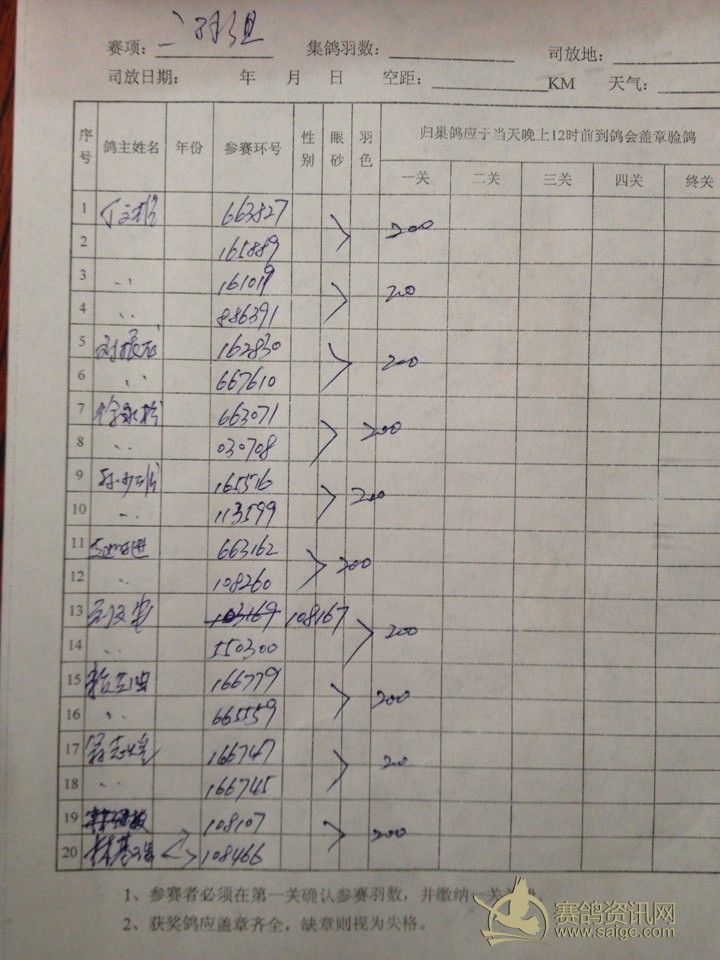 赛项：二羽组 集鸽羽数： 司放地：
司放日期： 年 月 日 空距： KM 天气：
序号 鸽主姓名 年份 参赛环号 性别 眼砂 羽色 归巢鸽应于当天晚上12时前到鸽会盖章验鸽
一关 二关 三关 四关 终关
1 663827
200
2 165889
3 〃 161019
200
4 〃 886391
5 162830
200
6 〃 667610
7 663071
200
8 〃 030708
9 165516
200
10 〃 113599
11 663162
200
12 〃 108260
13 103169 108167
200
14 〃 550300
15 166779
200
16 〃 665559
17 166747
200
18 〃 166745
19 108107
200
20 108466
1、参赛者必须在第一关确认参赛羽数，并缴纳一关
2、获奖鸽应盖章齐全，缺章则视为失格。
赛鸽资讯网
www.saigc.com